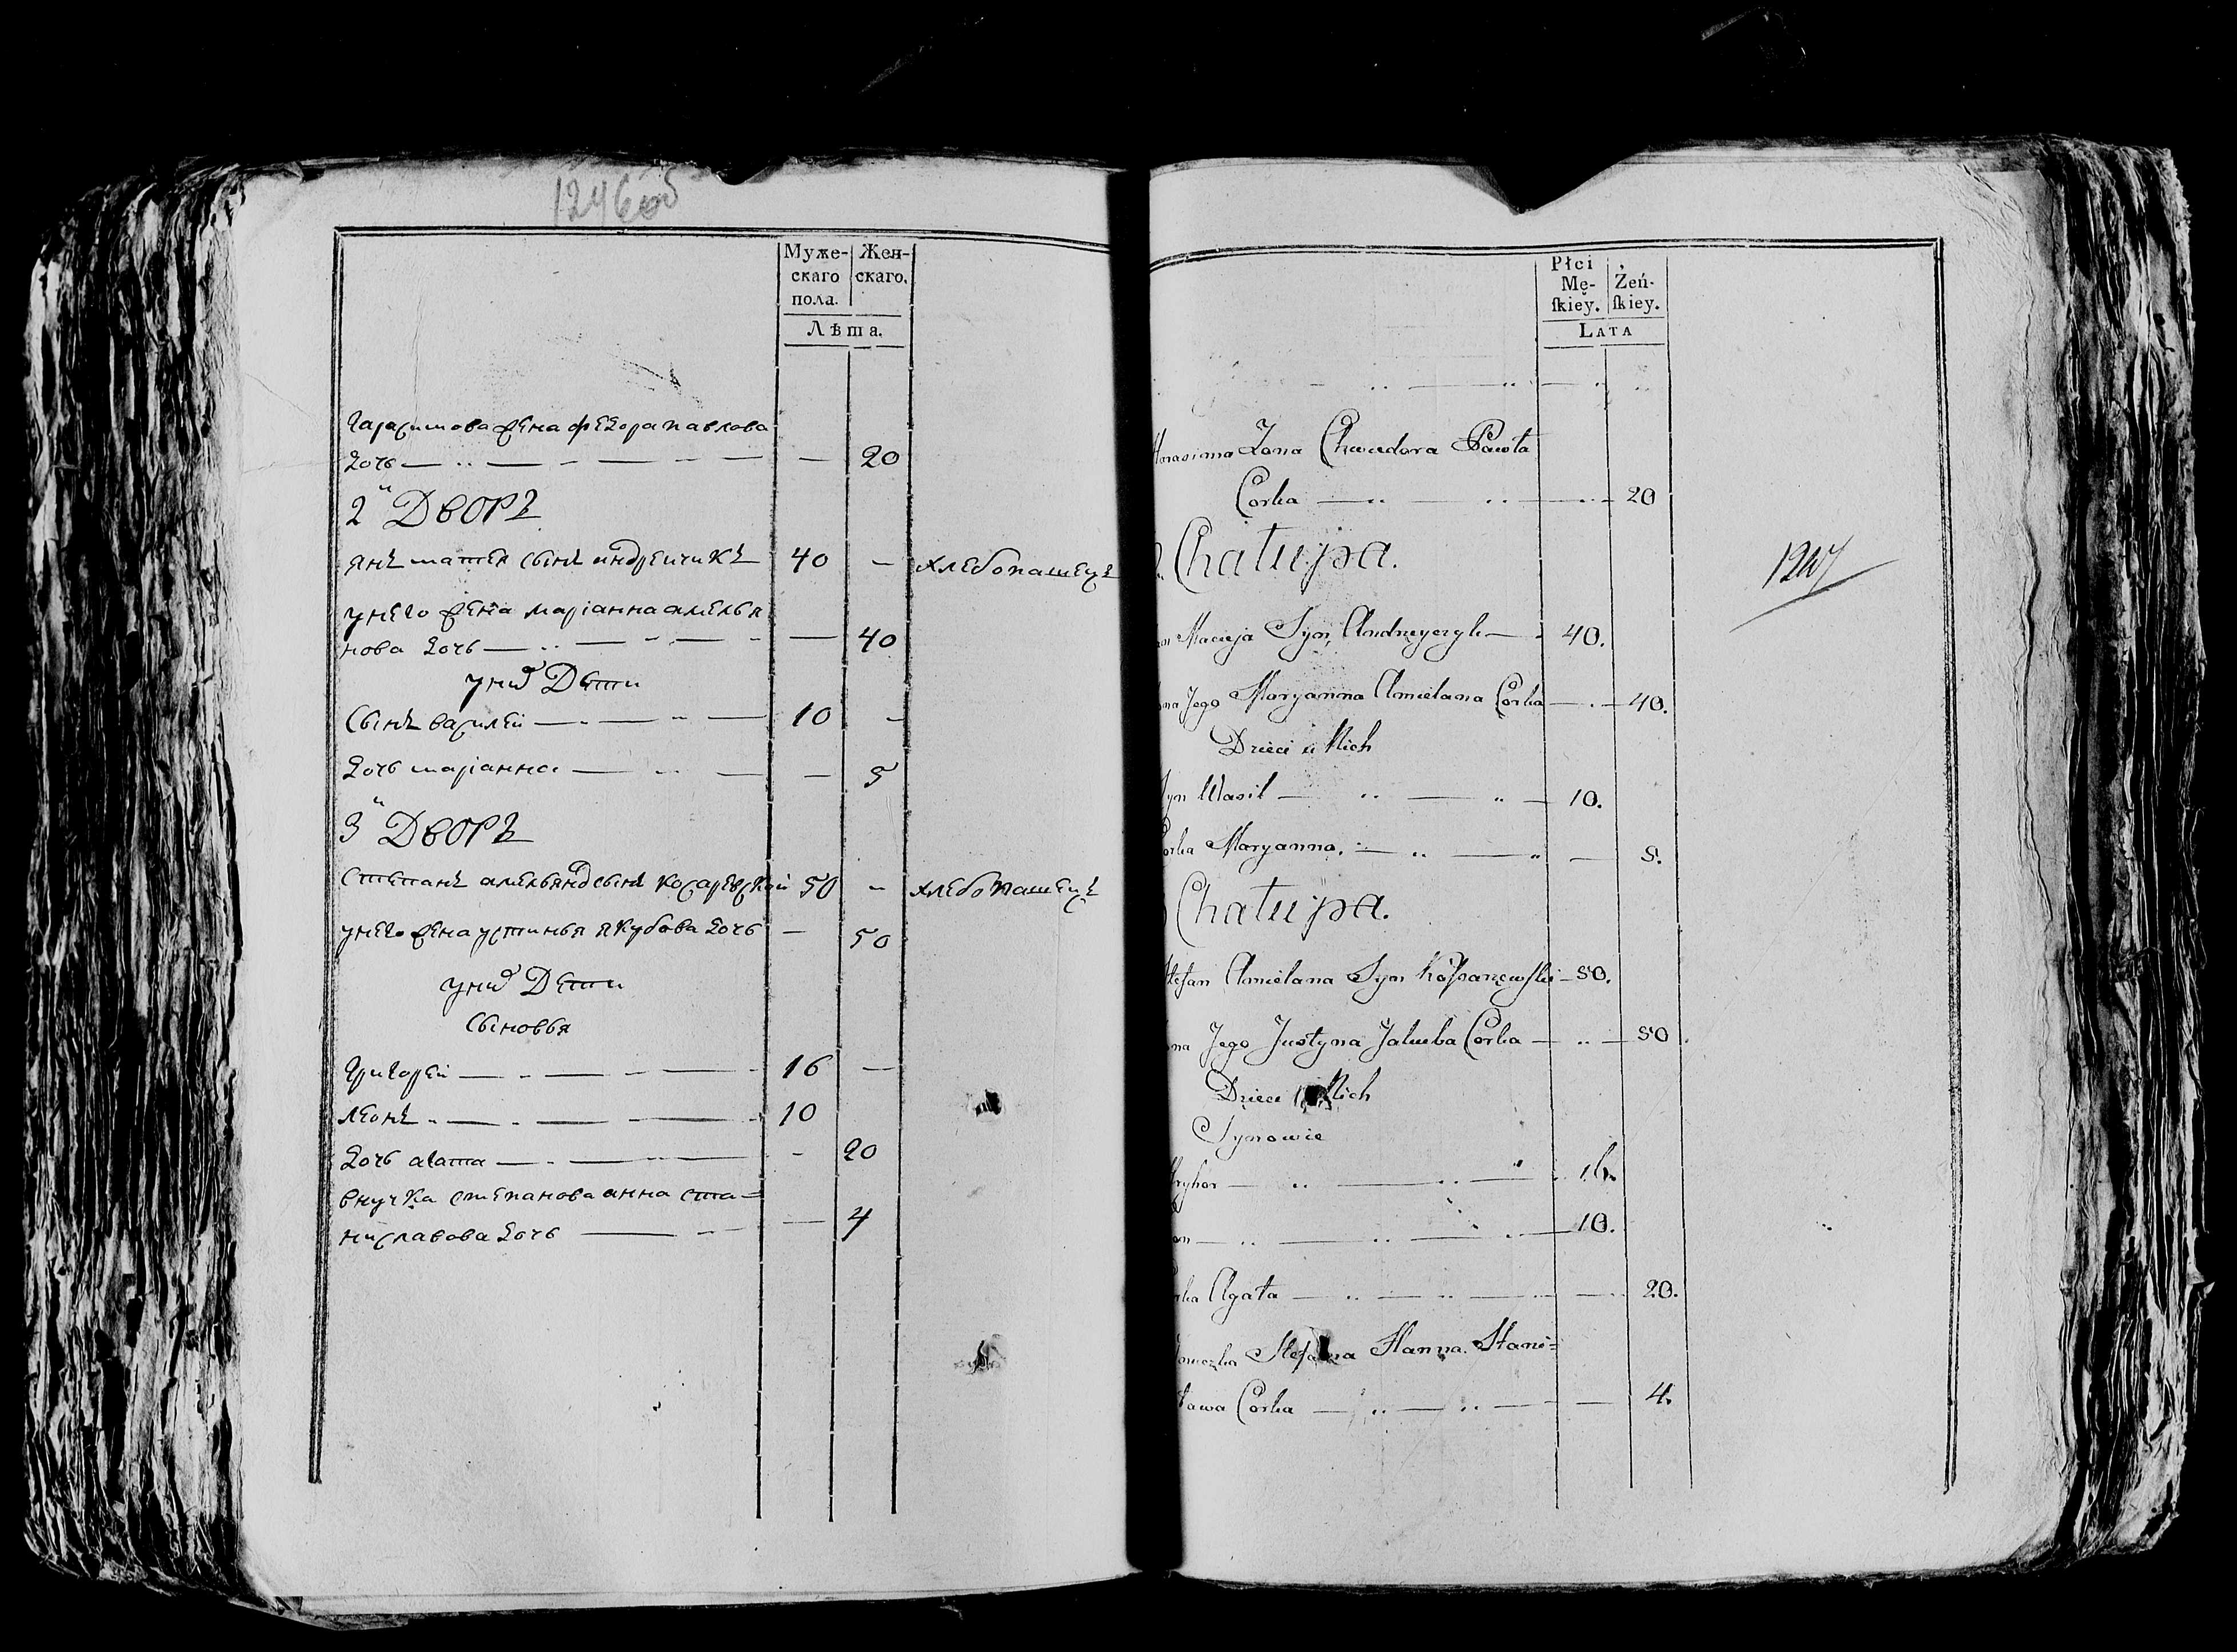 1246об
Муже-
скаго
пола.
Жен-
скаго.
Лѣта.
Гарасимова жена федора павлова
дочь — — 20
2й ДВОРЪ
янъ матея сынъ индрейчикъ 40 — хлебопашецъ
унего жена маріанна амелья
нова дочь — — 40
унихъ Дети
Сынъ василей — 10 —
дочь маріанна — — 5
3й ДВОРЪ
Степанъ амельяновъ сынъ косаревской 50 — хлебопашецъ
унего жена устинья якубова дочь — 50
унихъ Дети
Сыновья
Григорей — 16 —
леонъ — 10
дочь агата — - 20
внучка степанова анна ста=
ниславова дочь — — 4
Płci
Mę-
ſkiey.
Żeń-
ſkiey.
Lata
Harasima Zona Chwedora Pawła
Corka — — 20
Chałupa.
1247
Macieja Syn Andreyczyk — 40.
Jego Maryanna Amielana Corka — 40.
Dzieci u Nich
Syn Wasil — 10.
Corka Maryanna. — — 5.
Chałupa.
Stefan Amielana Syn Kossarzewski — 50.
Jego Justyna Jakuba Corka — 50
Dzieci u Nich
Synowie
Hryhor — 16.
— 10.
Corka Agata — — 20.
Stefana Hanna Stani=
sława Corka — — 4.